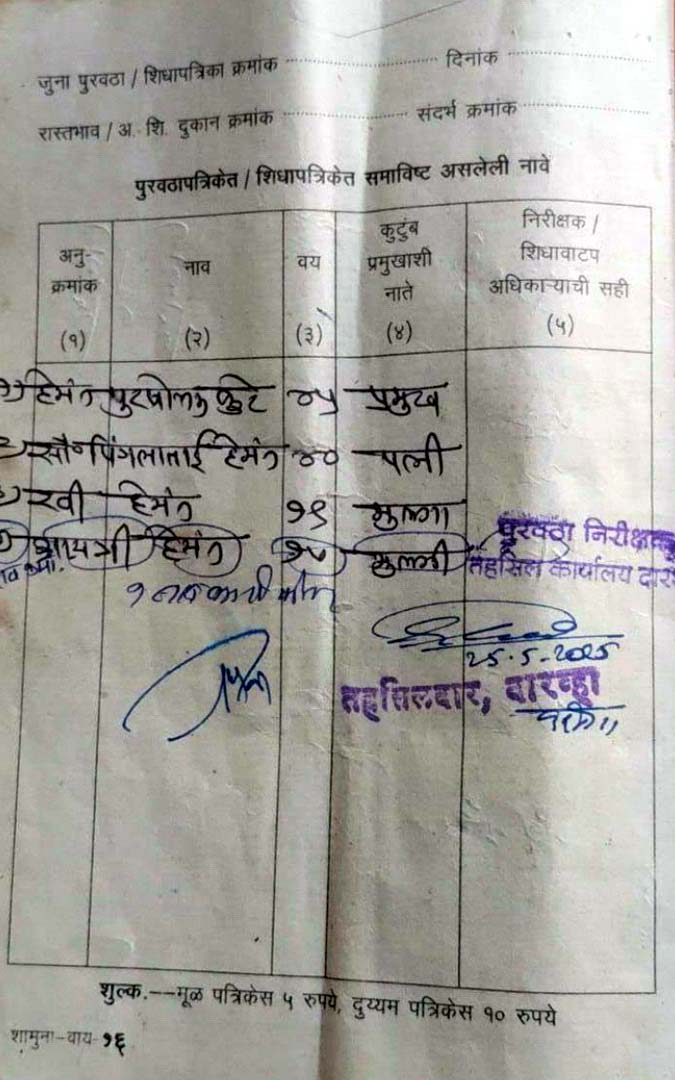 जुना पुरवठा / शिधापत्रिका क्रमांक ........................ दिनांक ........................
रास्तभाव / अ. शि. दुकान क्रमांक ........................ संदर्भ क्रमांक ........................
पुरवठापत्रिकेत / शिधापत्रिकेत समाविष्ट असलेली नावे
अनु-क्रमांक नाव वय कुटुंब प्रमुखाशी नाते निरीक्षक / शिधावाटप अधिकाऱ्याची सही
(१) (२) (३) (४) (५)
१) हेमंत ४५ प्रमुख
२) सौ पिंगलाताई हेमंत ४० पत्नी
३) रवी हेमंत १९ मुलगा
४) गायत्री हेमंत १५ मुलगी
पुरवठा निरीक्षक
तहसिल कार्यालय
25.5-2025
तहसिलदार, दारव्हा
शुल्क.--मूळ पत्रिकेस ५ रुपये, दुय्यम पत्रिकेस १० रुपये
शामुना-वाय-१६